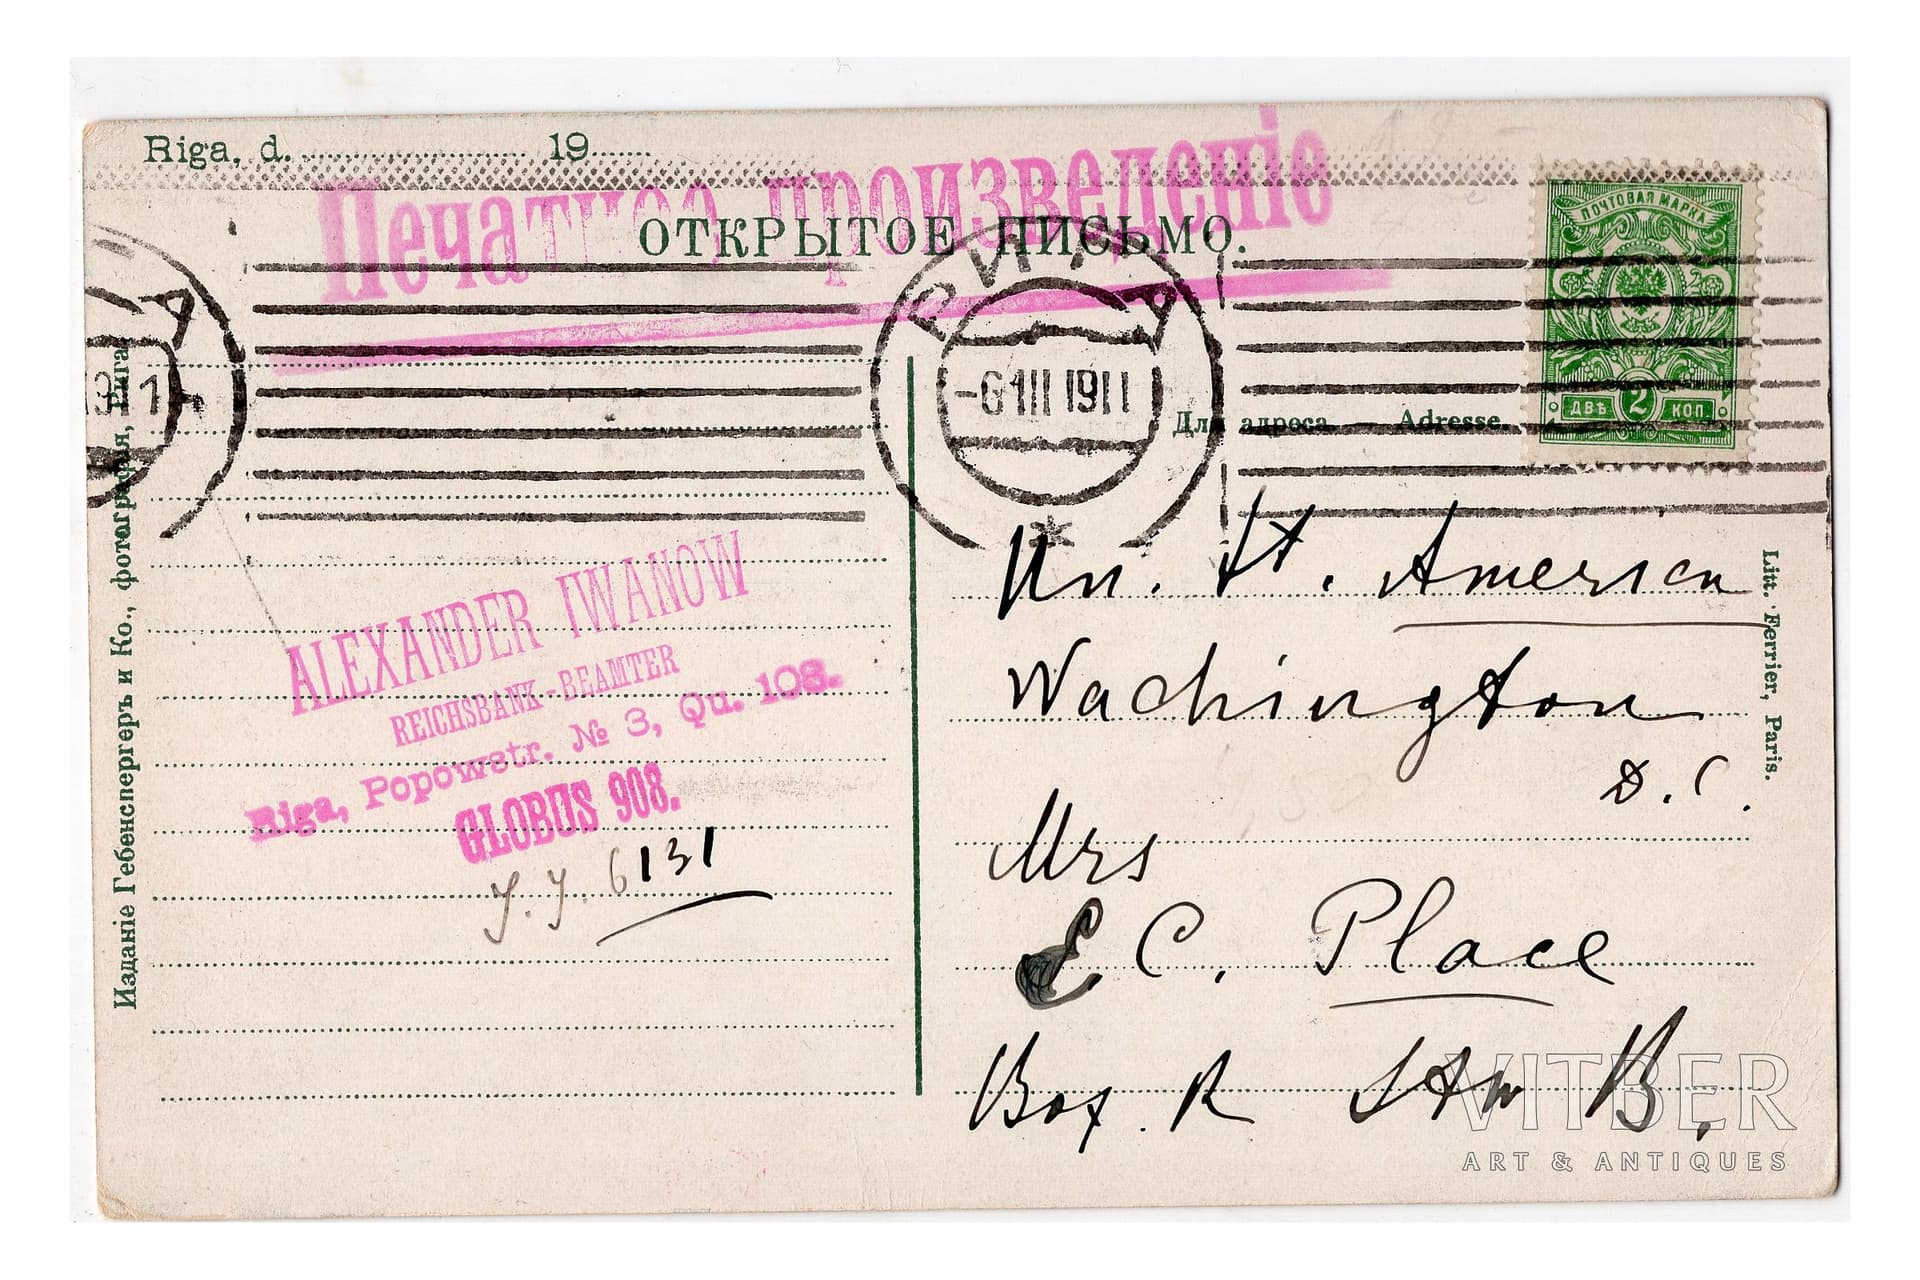 Riga, d. 19
Печатное произведенiе
ОТКРЫТОЕ ПИСЬМО.
ПОЧТОВАЯ МАРКА
ДВѢ 2 КОП.
РИГА
-6 III 1911
А
Для адреса. — Adresse.
ALEXANDER IWANOW
REICHSBANK-BEAMTER
Riga, Popowstr. № 3, Qu. 108.
GLOBUS 908.
6131
Un. St. America
Wachington
D.C.
Mrs
E.C. Place
Box. R
B.
Изданiе Гебенспергеръ и Ко., фотографiя, Рига.
Litt. Ferrier, Paris.
VITBER
ART & ANTIQUES